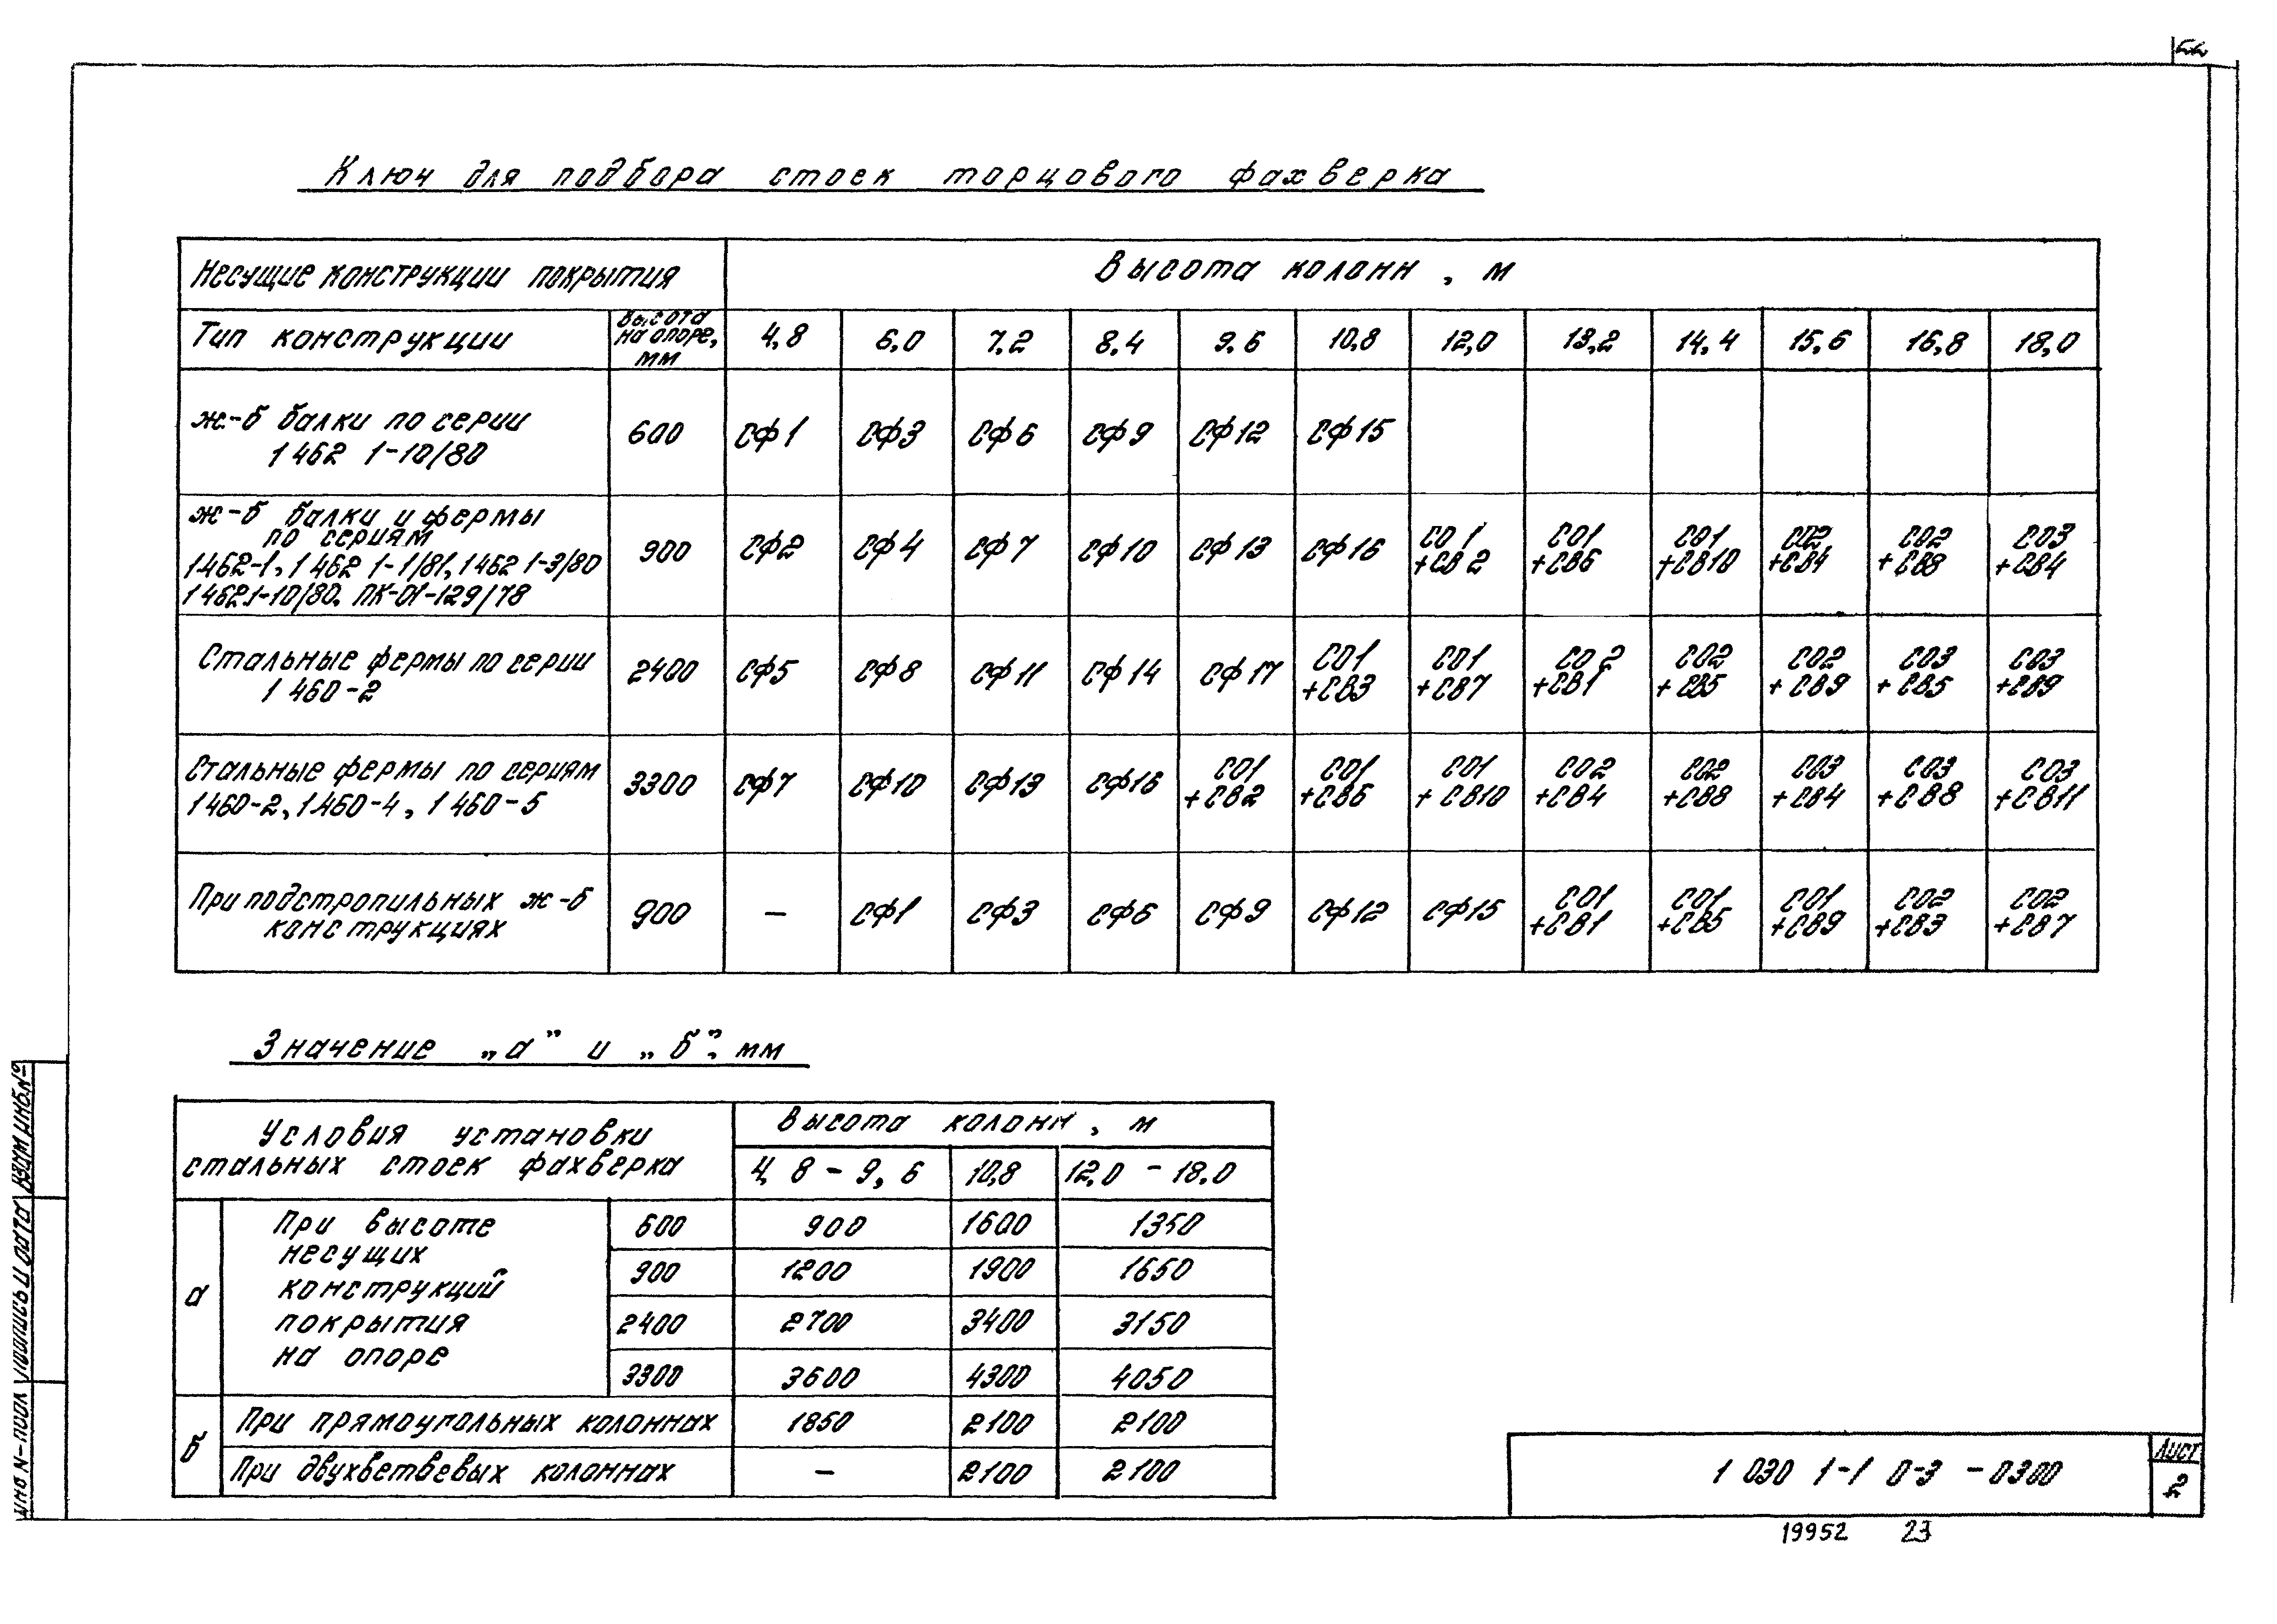 Ключ для подбора стоек торцового фахверка
Несущие конструкции покрытия
Высота колонн, м
Тип конструкции
Высота
на опоре,
мм
4,8 6,0 7,2 8,4 9,6 10,8 12,0 13,2 14,4 15,6 16,8 18,0
ж-б балки по серии
1 462 1-10/80
600 СФ1 СФ3 СФ6 СФ9 СФ12 СФ15
ж-б балки и фермы
по сериям
1462-1, 1 462 1-1/81, 1462 1-3/80
1 462.1-10/80. ПК-01-129/78
900 СФ2 СФ4 СФ7 СФ10 СФ13 СФ16 СО1 СО1 СО1 СО2 СО2 СО3
+СВ2 +СВ6 +СВ10 +СВ4 +СВ8 +СВ4
Стальные фермы по серии
1 460-2
2400 СФ5 СФ8 СФ11 СФ14 СФ17 СО1 СО1 СО2 СО2 СО2 СО3 СО3
+СВ3 +СВ7 +СВ1 +СВ5 +СВ9 +СВ5 +СВ9
Стальные фермы по сериям
1 460-2, 1.460-4, 1 460-5
3300 СФ7 СФ10 СФ13 СФ16 СО1 СО1 СО1 СО2 СО2 СО3 СО3 СО3
+СВ2 +СВ6 +СВ10 +СВ4 +СВ8 +СВ4 +СВ8 +СВ11
При подстропильных ж-б
конструкциях
900 — СФ1 СФ3 СФ6 СФ9 СФ12 СФ15 СО1 СО1 СО1 СО2 СО2
+СВ1 +СВ5 +СВ9 +СВ3 +СВ7
Значение „а” и „б”, мм
Условия установки
стальных стоек фахверка
Высота колонн, м
4,8-9,6 10,8 12,0-18.0
а
При высоте
несущих
конструкций
покрытия
на опоре
600 900 1600 1350
900 1200 1900 1650
2400 2700 3400 3150
3300 3600 4300 4050
б
При прямоугольных колоннах 1850 2100 2100
При двухветвевых колоннах — 2100 2100
1 030 1-1 0-3 -0300
Лист
2
19952 23
Инв N-подл
Подпись и дата
Взам инв.№